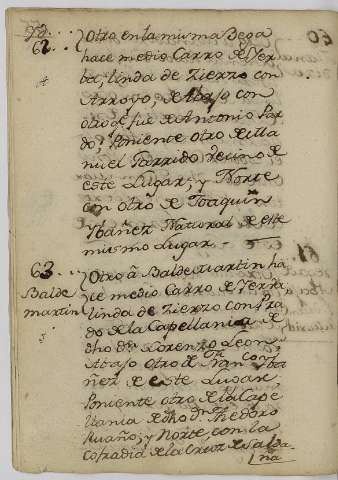 62. Otro en la misma Bega
hace medio Carro de Yer
ba, linda de Zierzo con
Arroyo, Abajo con
otro q.e fue de Antonio Par
do, Poniente otro de Ma
nuel Garrido vecino de
este Lugar, y Norte
con otro de Joaquin
Ybañez Natural de este
mismo Lugar.
63. Otro â Baldemartin ha
Balde
martin
ze medio Carro de Yerba
linda de Zierzo con Pra
do de la Capellania de
dho dn. Lorenzo Leon
Abajo otro de Fran.co Yba
ñez de este Lugar
Poniente otro de la Cape
llania de dho dn. Theodoro
Ruaño, y Norte, con la
cofradia de la Cruz de Salda
ña